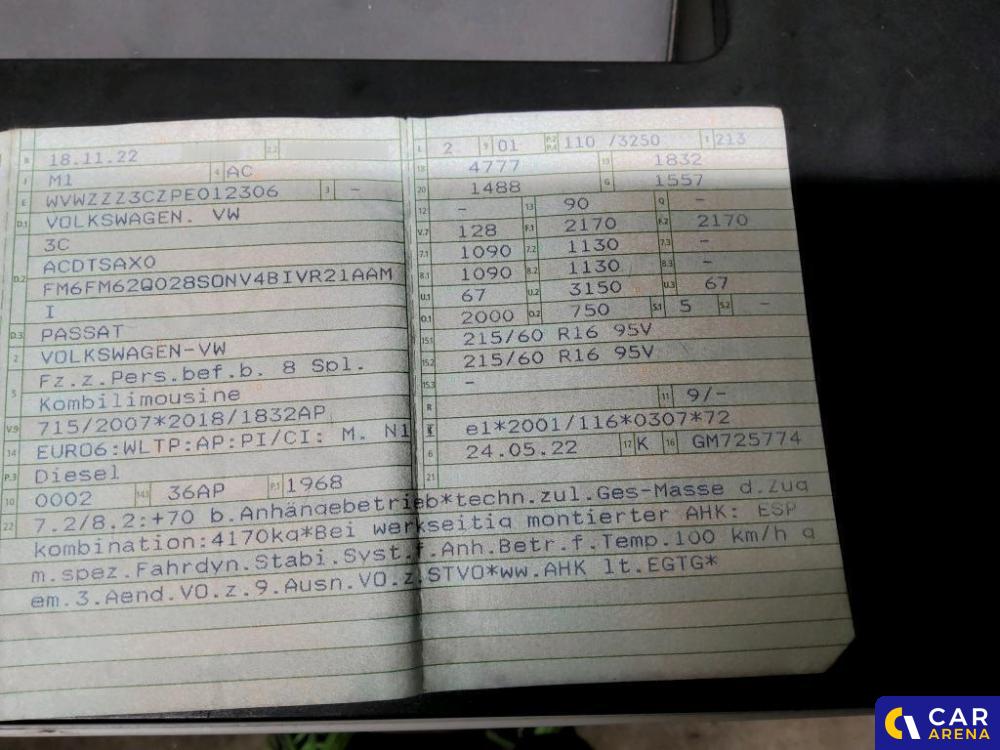 B 18.11.22 2.2
J M1 4 AC
E WVWZZZ3CZPE012306 3 -
D.1 VOLKSWAGEN. VW
3C
D.2 ACDTSAX0
FM6FM62Q028S0NV4BIVR21AAM
I
D.3 PASSAT
2 VOLKSWAGEN-VW
5 Fz.z.Pers.bef.b. 8 Spl.
Kombilimousine
V.9 715/2007*2018/1832AP
14 EURO6:WLTP:AP:PI/CI: M. N1
P.3 Diesel
10 0002 14.1 36AP P.1 1968
L 2 9 01 P.2 P.4 110 /3250 T 213
18 4777 19 1832
20 1488 G 1557
12 - 13 90 Q -
V.7 128 F.1 2170 F.2 2170
7.1 1090 7.2 1130 7.3 -
8.1 1090 8.2 1130 8.3 -
U.1 67 U.2 3150 U.3 67
O.1 2000 O.2 750 S.1 5 S.2 -
15.1 215/60 R16 95V
15.2 215/60 R16 95V
15.3 -
R 11 9/-
K e1*2001/116*0307*72
6 24.05.22 17 K 16 GM725774
21
22 7.2/8.2:+70 b.Anhängebetrieb*techn.zul.Ges-Masse d.Zug
kombination:4170kg*Bei werkseitig montierter AHK: ESP
m.spez.Fahrdyn.Stabi.Syst.f.Anh.Betr.f.Temp.100 km/h g
em.3.Aend.VO.z.9.Ausn.VO.z.STVO*ww.AHK lt.EGTG*
CAR
ARENA